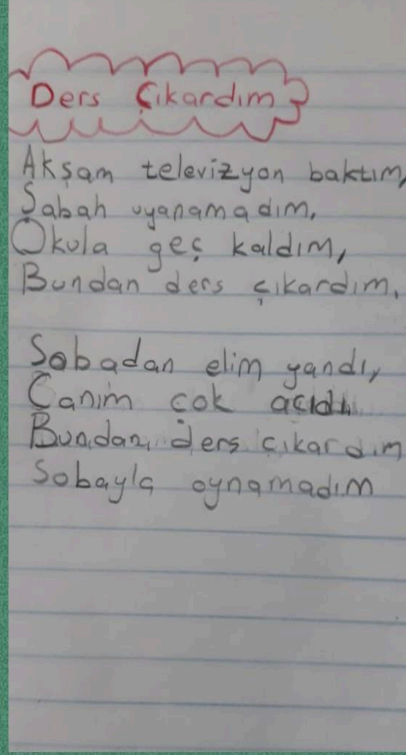 Ders Çıkardım
Akşam televizyon baktım,
Sabah uyanamadım,
Okula geç kaldım,
Bundan ders çıkardım.
Sobadan elim yandı,
Canım çok acıdı
Bundan, ders çıkardım
Sobayla oynamadım